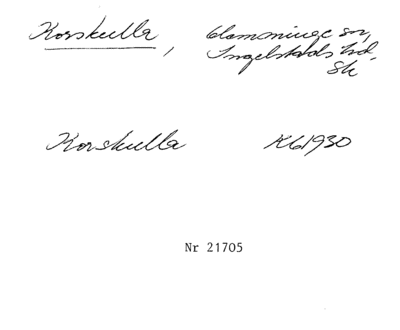 Korskulla, Glemminge sn,
Ingelstads hd.
Sk
Korskulla KG1930
Nr 21705